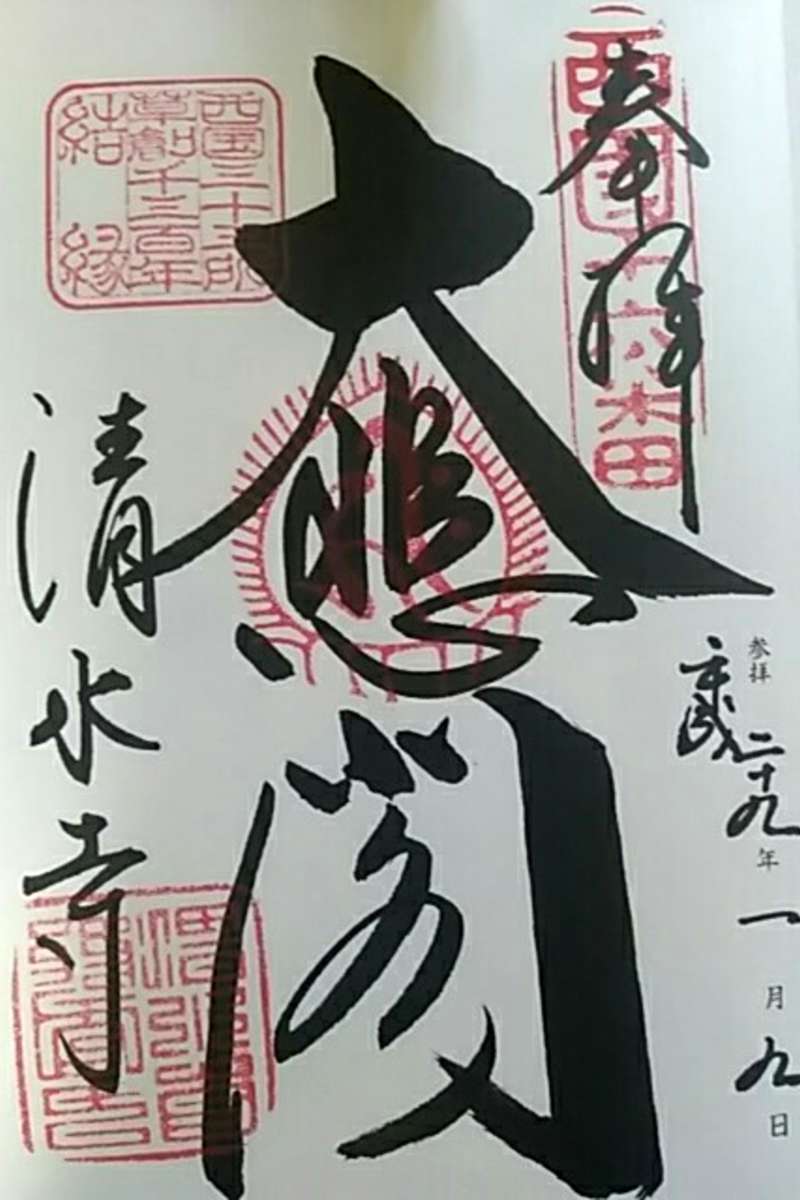 奉拝
西国十六番
大悲閣
清水寺
西国三十三所
草創千三百年
結縁
参拝
平成二十九年一月九日